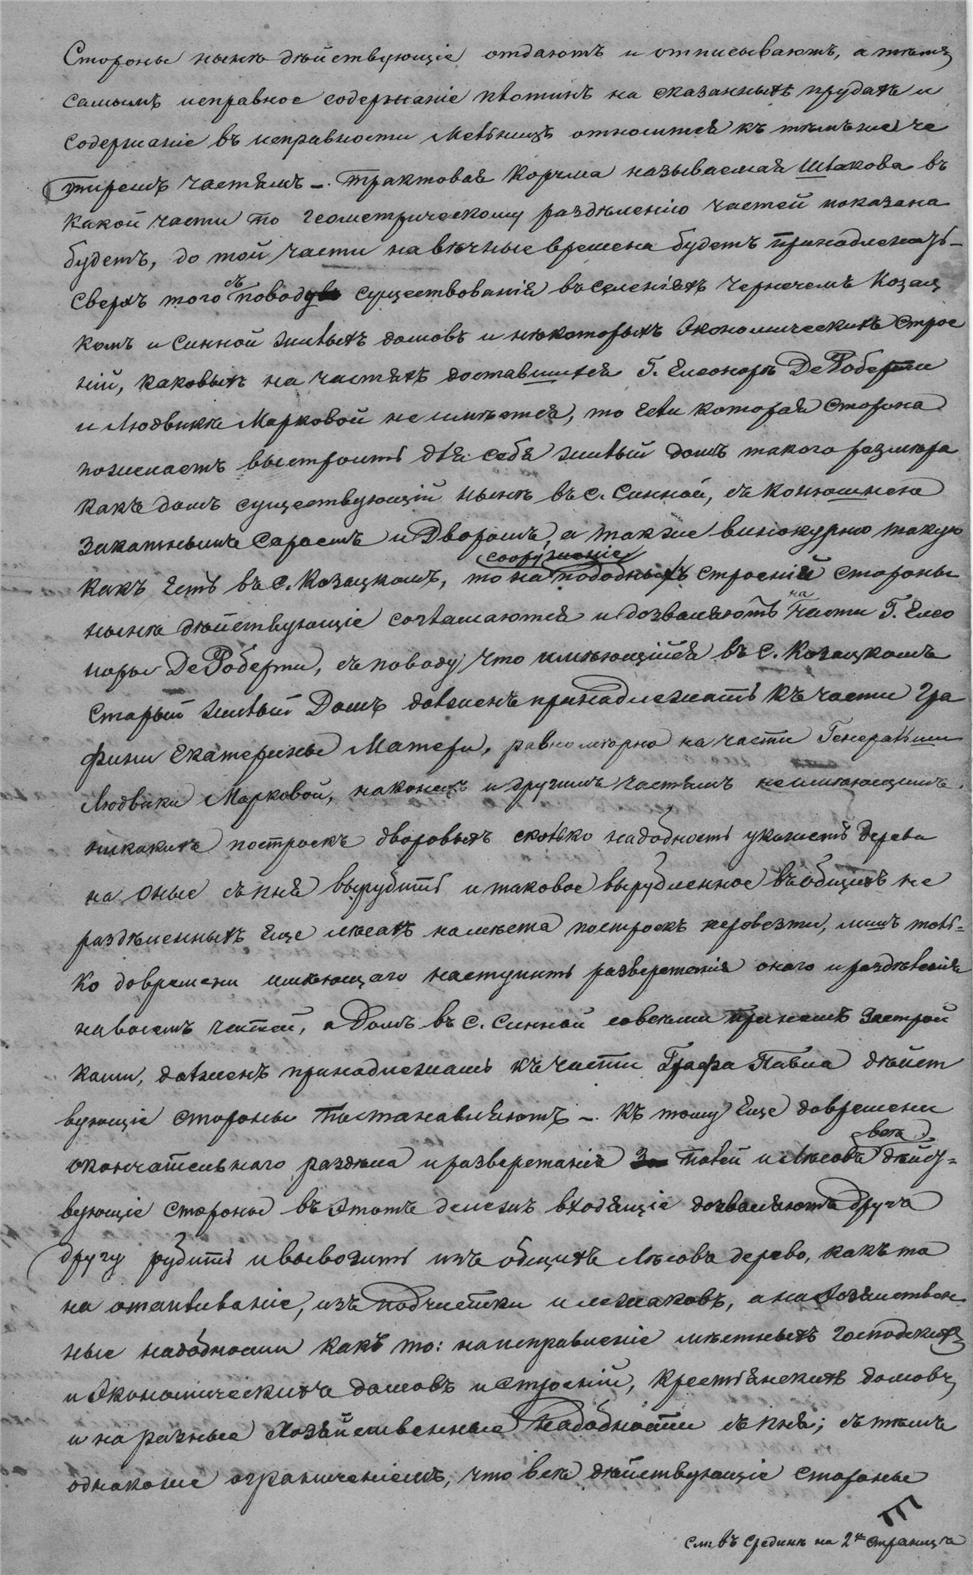 Стороны нынѣ дѣйствующіе отдаютъ и отписываютъ, а тѣмъ
самымъ исправное содержаніе плотинъ на сказанныхъ прудахъ и
содержаніе въ исправности мельницъ относится къ тѣмъ же че
тыремъ частямъ –. Трактовая корчма называемая Шлякова въ
какой части по геометрическому раздѣленію частей показана
будетъ, до той части на вѣчные времена будетъ принадлежать –
сверхъ того съ поводу существованія въ селеніяхъ Чернечемъ Козац
комъ и Синной жилыхъ домовъ и нѣкоторыхъ Экономическихъ строе
ній, каковыхъ на частяхъ доставшихся Г. Елеоноръ ДеРоберти
и Людвикѣ Марковой не имѣется, то если которая сторона
пожелаетъ выстроить для себя жилый домъ такого размѣра
какъ домъ существующій нынѣ въ с. Синной, съ конюшнею
закатнымъ сараемъ и Дворомъ, а также винокурню такую
сооруженіе
какъ есть въ с. Козацкомъ, то на подобныхъ строеній стороны
на
нынѣ дѣйствующіе соглашаются и дозволяютъ части Г. Елео
норы ДеРоберти, съ поводу что имѣющійся въ с. Козацкомъ
старый жилый Домъ долженъ принадлежать къ части Гра
фини Екатерины Матери, равномѣрно на части Генеральши
Людвики Марковой, наконецъ и другимъ частямъ неимѣющимъ
никакихъ построекъ дворовыхъ сколько надобность укажетъ дерева
на оные съ пня вырубить и таковое вырубленное въ общихъ не
раздѣленныхъ еще лѣсахъ на мѣста построекъ перевезти, лишъ толь-
ко до времени имѣющаго наступить разверстанія онаго и раздѣленія
на восемь частей, а Домъ въ с. Синной со всѣми при немъ застрой
ками, долженъ принадлежать къ части Графа Павла дѣйст
вующіе стороны постановляютъ –. Къ тому еще до времени
всѣ
окончательнаго раздѣла и разверстанія полей и лѣсовъ дѣйст-
вующіе стороны въ этотъ дележъ входящіе дозволяютъ другъ
другу рубить и вывозить изъ общихъ лѣсовъ дерево, какъ то
на отапливаніе, изъ подчистки и лежаковъ, а на хозяйствен
ные надобности какъ то: на исправленіе мѣстныхъ господскихъ
и Экономическихъ домовъ и строеній, крестьянскихъ домовъ
и на разные хозяйственные надобности съ пня; съ тѣмъ
однакоже ограниченіемъ, что всѣ дѣйствующіе стороны
см: въ срединѣ на 2й страницѣ